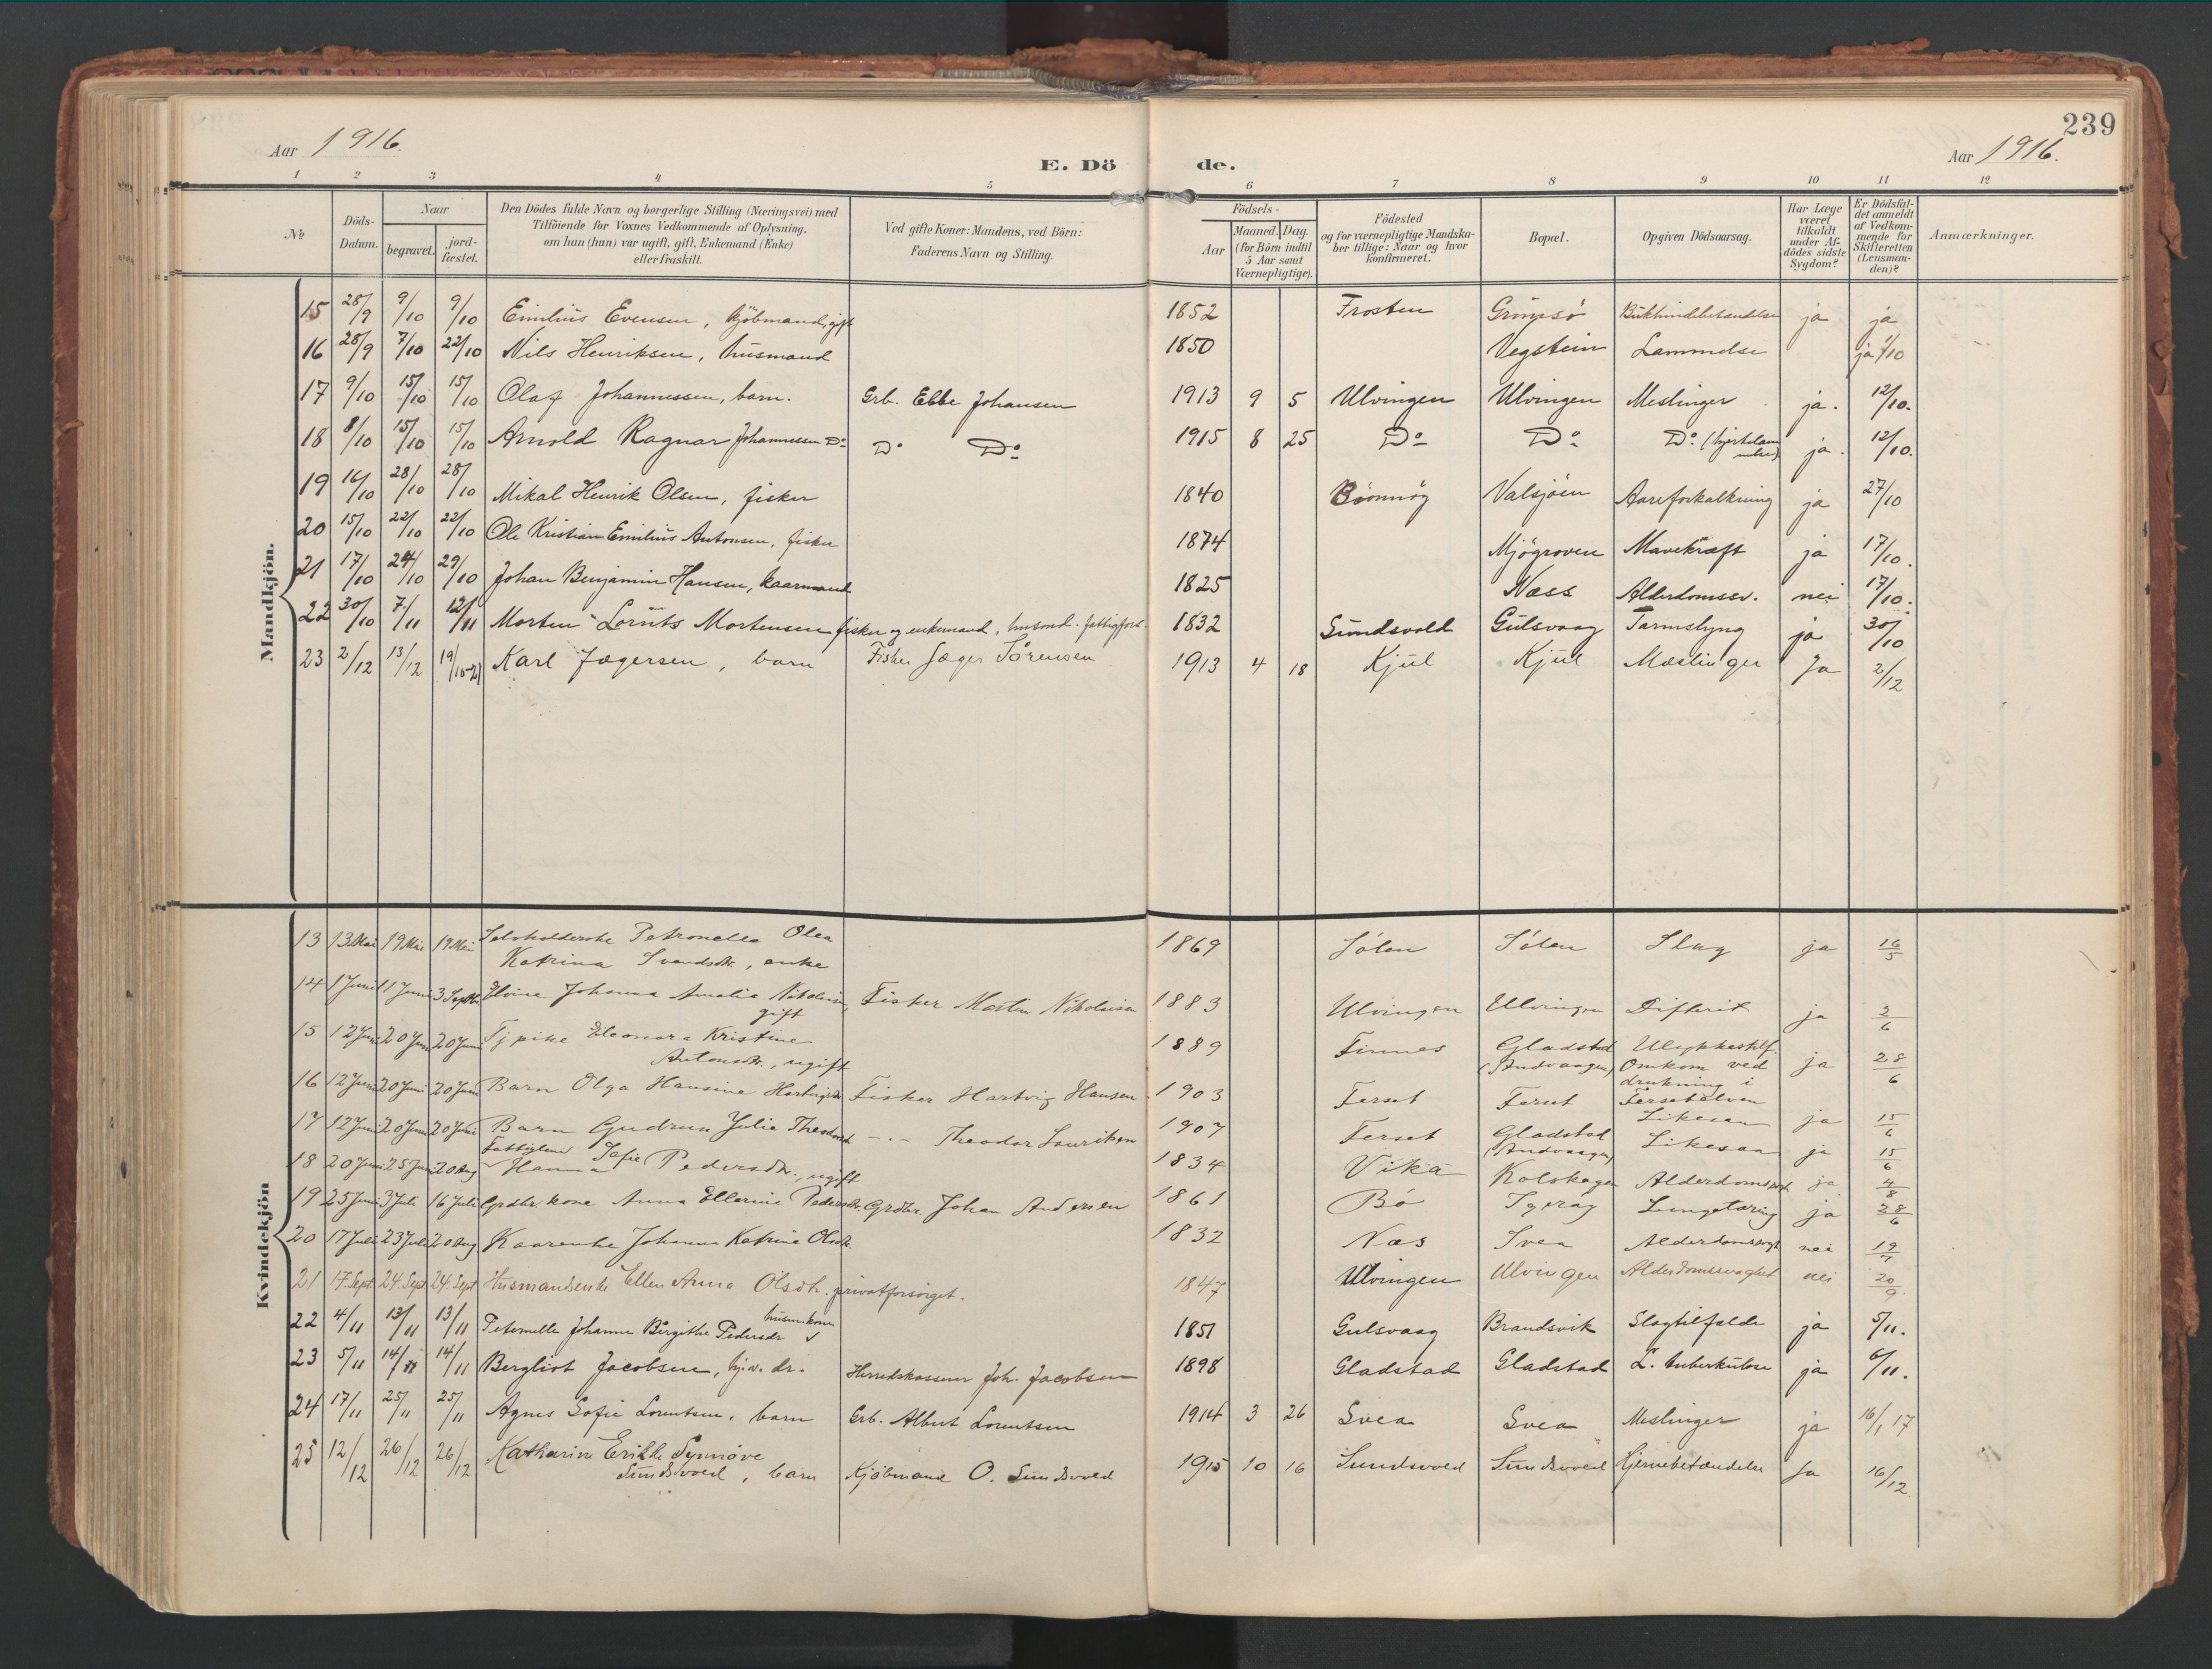 239
Aar 1916.
E. Dö de.
Aar 1916.
1 2 3 4 5 6 7 8 9 10 11 12
No
Döds-Datum.
Naar
begravet.
jordfæstet.
Den Dödes fulde Navn og borgerlige Stilling (Næringsvei) med
Tilföiende for Voxnes Vedkommende af Oplysning,
om han (hun) var ugift, gift, Enkemand (Enke)
eller fraskilt.
Ved gifte Koner: Mandens, ved Börn:
Faderens Navn og Stilling.
Födsels-
Aar
Maaned. Dag.
(for Börn indtil
5 Aar samt
Værnepligtige).
Födested
og for værnepligtige Mandska-
ber tillige: Naar og hvor
konfirmeret.
Bopæl.
Opgiven Dödsaarsag.
Har Læge
været
tilkaldt
under Af-
dödes sidste
Sygdom?
Er Dödsfal-
det anmeldt
af Vedkom-
mende for
Skifteretten
(Lensman-
den)?
Anmærkninger.
Mandkjön.
15 28/9 9/10 9/10 Emilius Evensen, kjöbmand, gift 1852 Frosten Grimsö Bukhindebetændelse ja ja
16 28/9 7/10 22/10 Nils Henriksen, husmand 1850 Vegstein Lammelse ja 1/10
17 9/10 15/10 15/10 Olaf Johannessen, barn. Grb. Ebbe Johansen 1913 9 5 Ulvingen Ulvingen Meslinger ja. 12/10.
18 8/10 15/10 15/10 Arnold Ragnar Johannessen Do Do Do 1915 8 25 Do Do Do (hjertelammelse) ja. 12/10.
19 16/10 28/10 28/10 Mikal Henrik Olsen, fisker 1840 Brönnög Valsjöen Aareforkalkning ja 27/10
20 15/10 22/10 22/10 Ole Kristian Emilius Antonsen, fisker 1874 Mjögroven Mavekræft ja 17/10.
21 17/10 24/10 29/10 Johan Benjamin Hansen, kaarmand 1825 Næss Alderdomssv. nei 17/10.
22 30/10 7/11 12/11 Morten Lornts Mortensen fisker og enkemand, husmd. fattigfors. 1832 Sundsvold Gulsvaag Tarmslyng ja 30/10
23 2/12 13/12 Karl Jægersen, barn Fisker Jæger Sörensen 1913 4 18 Kjul Kjul Mæslinger Ja 2/12
Kvindekjön
13 13 Mai 19 Mai 19 Mai Selvholderske Petronella Olea
Katrina Svendsdtr., enke 1869 Sölen Sölen Slag ja 16/5
14 1 Juni 11 Juni 3 Septbr. Elvine Johanna Amalia Nikolaisen,
gift Fisker Martin Nikolaisen 1883 Ulvingen Ulvingen Difterit ja 2/6
15 12 Juni 20 Juni 20 Juni Tj pike Eleonora Kristine
Antonsdtr., ugift 1889 Finnes Gladstad
(Andvaagen) Ulykkestilf.
Omkom ved
drukning i
Fersetelven ja 28/6
16 12 Juni 20 Juni 20 Juni Barn Olga Hansine Hartvigsdtr. Fisker Hartvig Hansen 1903 Ferset Ferset Likesaa ja 15/6
17 12 Juni 20 Juni 20 Juni Barn Gudrun Julie Theodorsdt -"- Theodor Lauritsen 1907 Ferset Gladstad
(Andvaagen) Likesaa ja 15/6
18 20 Juni 25 Juni 20 Aug Fattiglem
Hanna Sofie Pedersdtr., ugift 1834 Vika Kolskagen Alderdomssvt. ja 4/8
19 25 Juni 3 Juli 16 Juli Grdbr. kone Anna Ellerine Pedersdtr. Grdbr. Johan Andersen 1861 Bö Igeröy Lungetæring ja 28/6
20 17 Juli 23 Juli 20 Aug Kaarenke Johanna Katrine Olsdtr. 1832 Næs Svea Alderdomssvgt nei 19/7
21 17. Sept. 24. Sept. 24. Sept Husmandsenke Ellen Anna Olsdtr. privatforsörget. 1847 Ulvingen Ulvingen Alderdomssvaghet nei 20/9.
22 4/11 13/11 13/11 Petornelle Johanne Bergithe Pedersdr husmkone 1851 Gulsvaag Brandsvik Slagtilfælde ja 5/11.
23 5/11 14/11 14/11 Bergliot Jacobsen, hjv. dr. Herredskasserer Joh. Jacobsen 1898 Gladstad Gladstad L. tuberkulose ja 6/11.
24 17/11 25/11 25/11 Agnes Sofie Lorentsen, barn Grb. Albert Lorentsen 1914 3 26 Svea Svea Meslinger ja 16/1 17
25 12/12 26/12 26/12 Katharine Erikke Synnöve
Sundsvold, barn Kjöbmand O. Sundsvold 1915 10 16 Sundsvold Sundsvold Hjernebetændelse Ja 16/12.